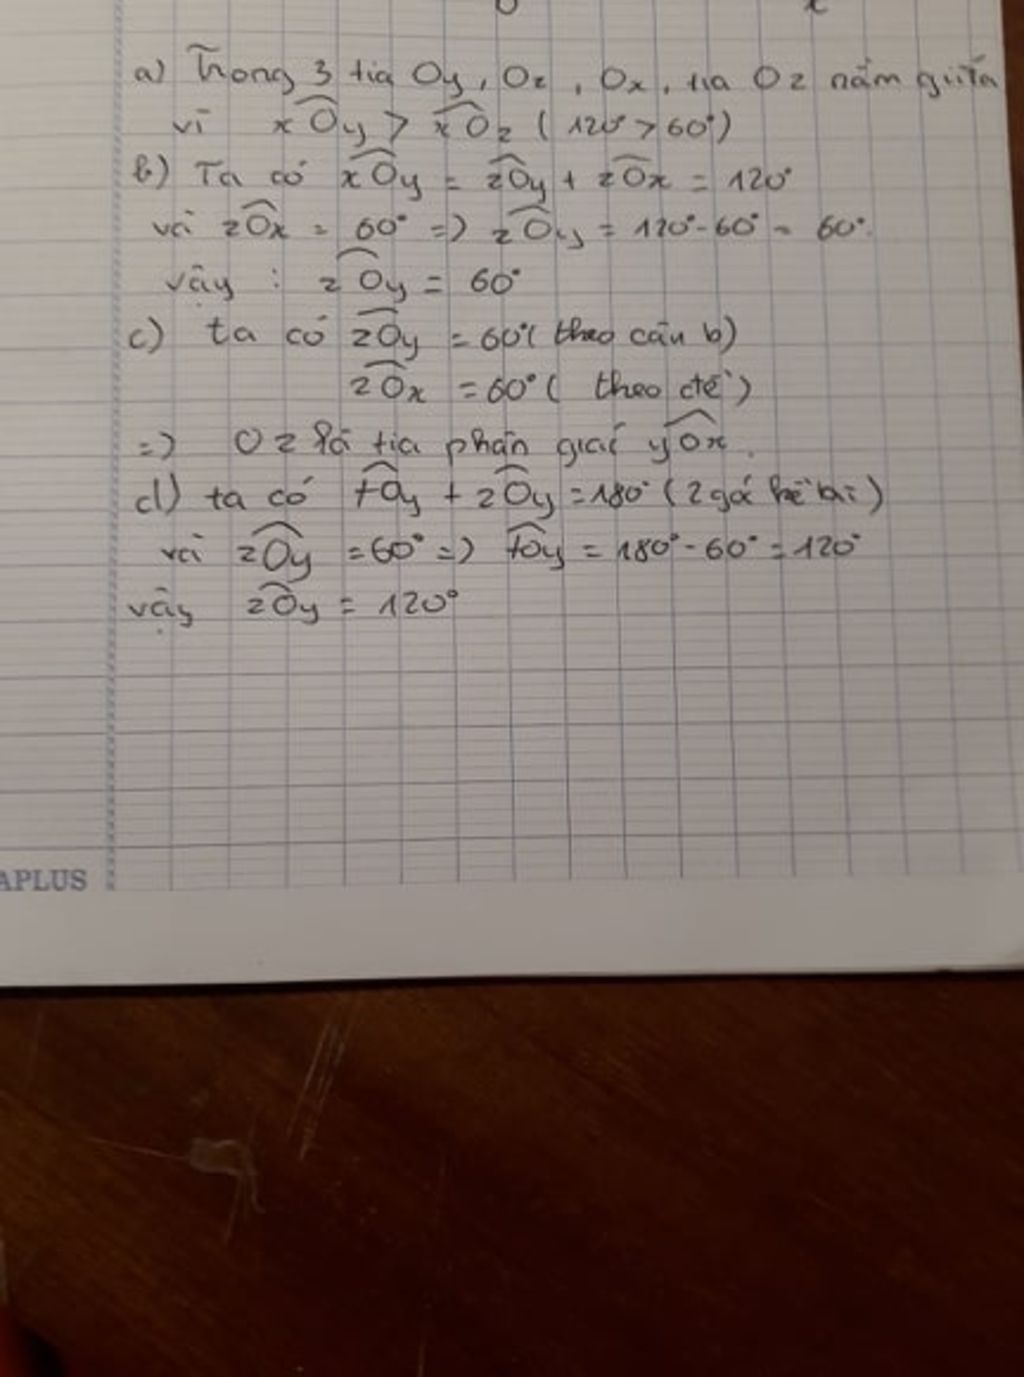 a) Trong 3 tia Oy, Oz, Ox, tia Oz nằm giữa
vì xOy > xOz (120° > 60°)
b) Ta có xOy = zOy + zOx = 120°
và zOx = 60° => zOy = 120° - 60° = 60°.
vậy : zOy = 60°
c) ta có zOy = 60° (theo câu b)
zOx = 60° (theo đề)
=> Oz là tia phân giác yOx.
d) ta có tOy + zOy = 180° (2 gó kề bù)
và zOy = 60° => tOy = 180° - 60° = 120°
vậy zOy = 120°
APLUS